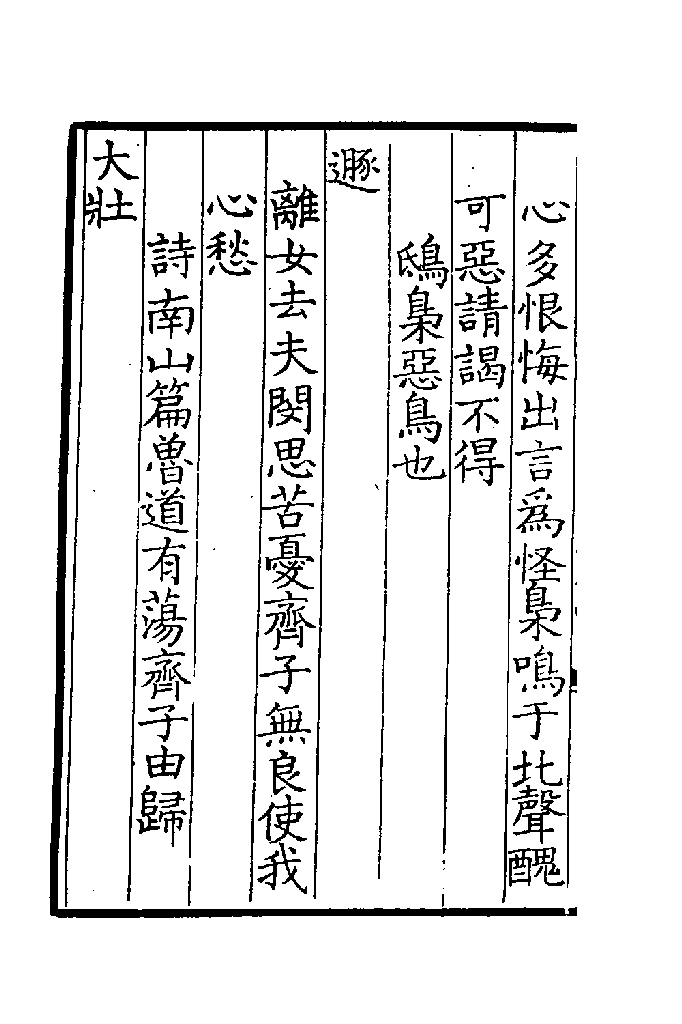 心多恨悔出言爲怪梟鳴于北聲醜
可惡請謁不得
鴟梟惡鳥也
遯
離女去夫閔思苦憂齊子無良使我
心愁
詩南山篇魯道有蕩齊子由歸
大壯